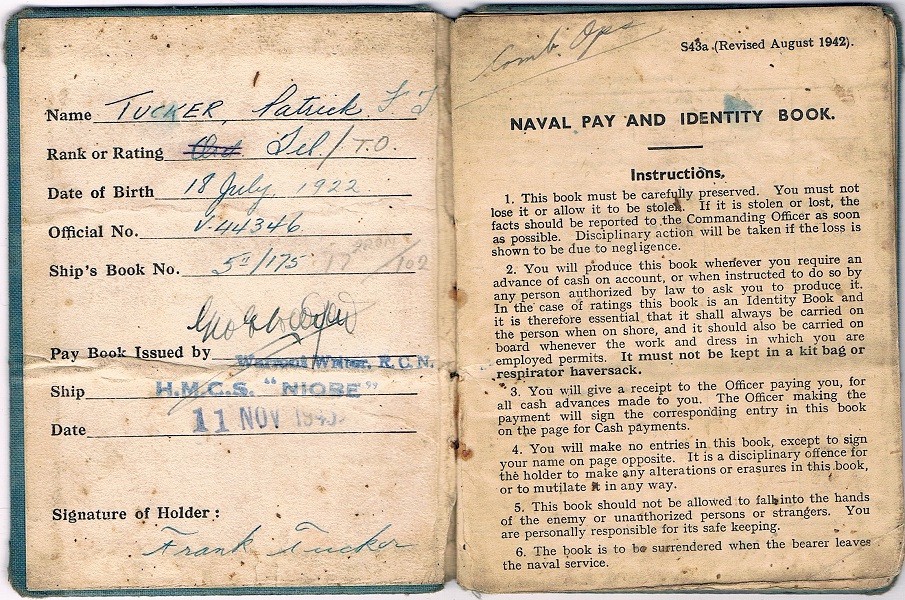 Name TUCKER, Patrick F J
Rank or Rating Ord Tel/T.O.
Date of Birth 18 July, 1922
Official No. V-44346
Ship's Book No. 5ᴵᴵ/175 17 /102
Pay Book Issued by
Warrant Writer, R.C.N.
Ship H.M.C.S. "NIOBE"
Date 11 NOV 1943
Signature of Holder :
Frank Tucker
Comb. Ops
S43a (Revised August 1942).
NAVAL PAY AND IDENTITY BOOK.
Instructions.
1. This book must be carefully preserved. You must not
lose it or allow it to be stolen. If it is stolen or lost, the
facts should be reported to the Commanding Officer as soon
as possible. Disciplinary action will be taken if the loss is
shown to be due to negligence.
2. You will produce this book whenever you require an
advance of cash on account, or when instructed to do so by
any person authorized by law to ask you to produce it.
In the case of ratings this book is an Identity Book and
it is therefore essential that it shall always be carried on
the person when on shore, and it should also be carried on
board whenever the work and dress in which you are
employed permits. It must not be kept in a kit bag or
respirator haversack.
3. You will give a receipt to the Officer paying you, for
all cash advances made to you. The Officer making the
payment will sign the corresponding entry in this book
on the page for Cash payments.
4. You will make no entries in this book, except to sign
your name on page opposite. It is a disciplinary offence for
the holder to make any alterations or erasures in this book,
or to mutilate it in any way.
5. This book should not be allowed to fall into the hands
of the enemy or unauthorized persons or strangers. You
are personally responsible for its safe keeping.
6. The book is to be surrendered when the bearer leaves
the naval service.